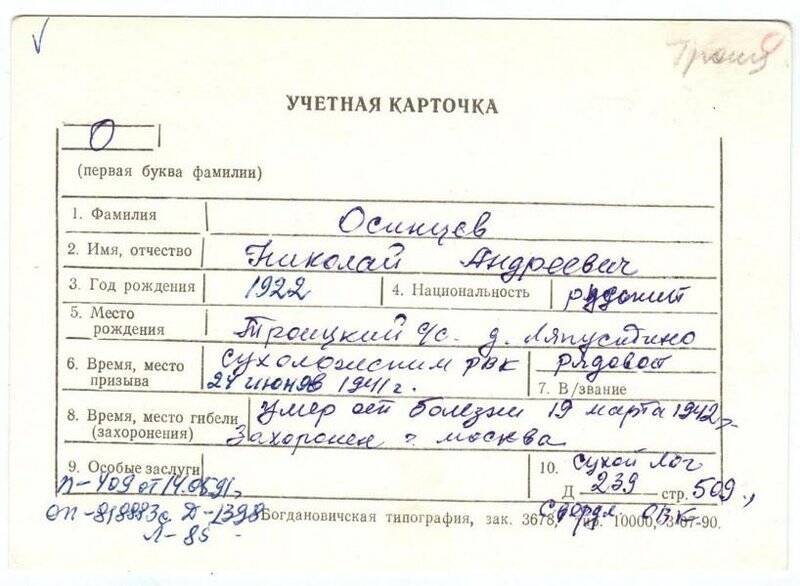 Троиц
УЧЕТНАЯ КАРТОЧКА
О
(первая буква фамилии)
1. Фамилия Осинцев
2. Имя, отчество Николай Андреевич
3. Год рождения 1922 4. Национальность русский
5. Место рождения Троицкий с/с. д. Ляпустино
6. Время, место призыва Сухоложским РВК
24 июня 1941 г.
рядовой
7. В/звание
8. Время, место гибели (захоронения) Умер от болезни 19 марта 1942 г.
Захоронен г. Москва
9. Особые заслуги
10. Сухой Лог
Д 239 стр. 509,
Свердл. ОВК
П-409 от 14.05.91г.
ОП-818883с. Д-1398
Л-85
Богдановичская типография, зак. 3678, 10000, 3-07-90.